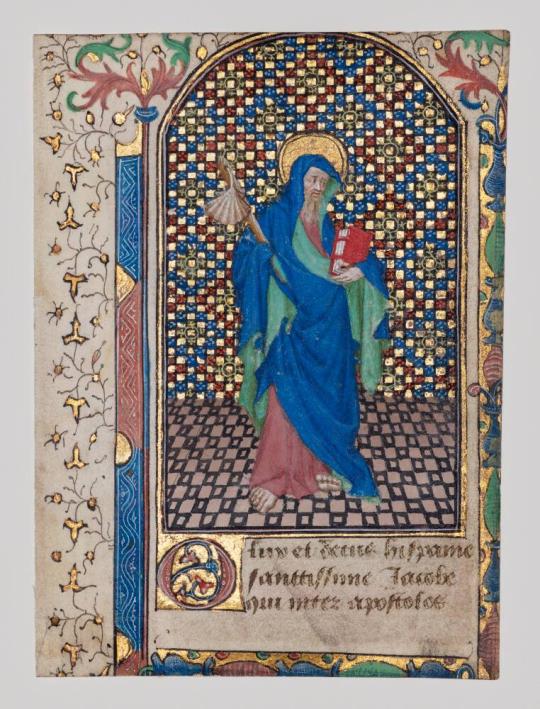 O lux et decus hispanie
sanctissime Jacobe
qui inter apostolos